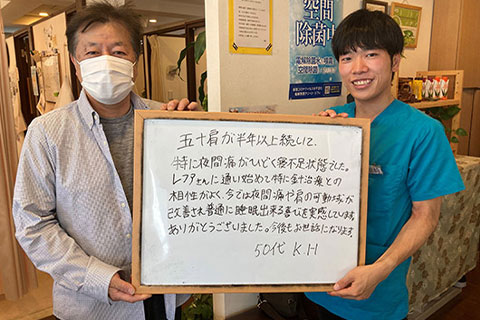 空間
除菌
五十肩が半年以上続いて、
特に夜間痛がひどく寝不足状態でした。
レアアさんに通い始めて特に針治療との
相性がよく、今では夜間痛や肩の可動域が
改善され普通に睡眠出来る喜びを実感しています。
ありがとうございました。今後もお世話になります。
50代 K.H